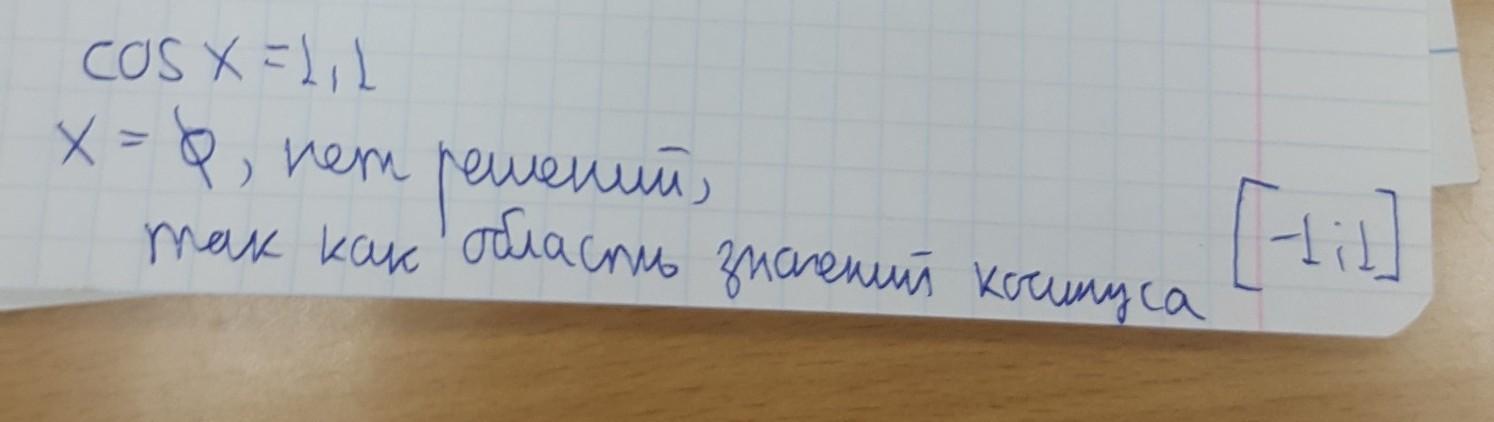 cos x = 1,1
x = ∅, нет решений,
так как область значений косинуса [-1;1]